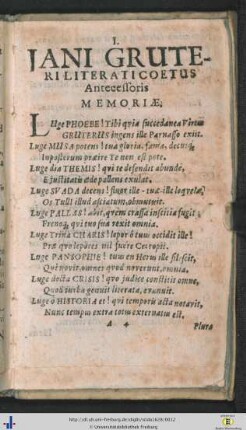 I.
JANI GRUTE-
RI LITERATI COETUS
Antecessoris
MEMORIÆ.
LUge PHOEBE! Tibi qvia succedanea Virtus
GRUTERUS ingens ille Parnasso exiit.
Luge MUSA potens! tua gloria, fama, decus
In posterum præire Te non est potis.
Luge dia THEMIS! qvi te defendit abunde,
E justitiæ æde pallens exulat.
Luge SVADA decens! fugit ille tuæ
Os Tulli illud
Luge PALLAS! abit, qvem crassa inscitia fugit
Frenoq, qvi tuo sua texit omnia.
Luge Trina CHARIS! lepor ô tum occidit ille!
Præ qvo lepores nil fuere Cecropii.
Luge PANSOPHIE! tuus en Heros ille
Qvi novit, omnes qvod noverunt, omnia.
Luge docta CRISIS! qvo judice constitit omne,
Qvod turba genuit literata,
Luge ô HISTORIA et! qvi temporis acta notavit,
Nunc tempus extra totus externatus est.
A
Plura
© Universitätsbibliothek Freiburg